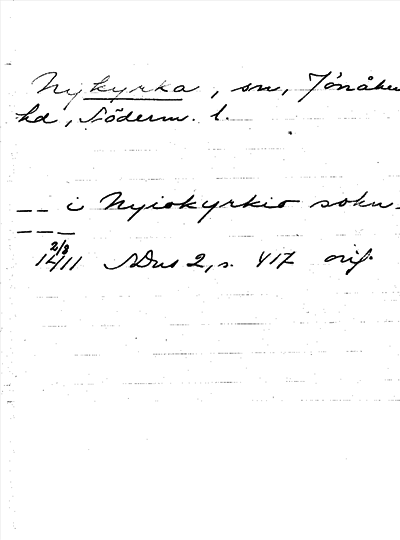 Nykyrka, sn, Jönåker
hd, Söderm. l.
_ _ i Nyiokyrkio sokn _
_ _ _
2/3
1411 SDns 2, s. 417 orig.